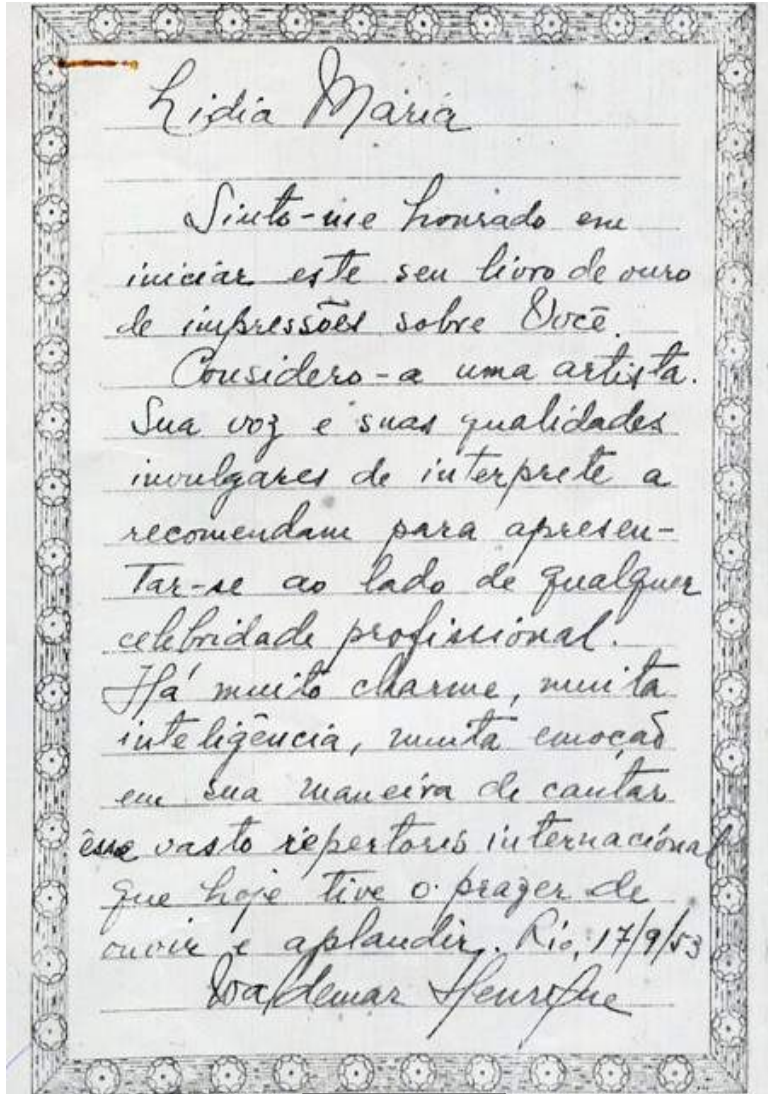 Lidia Maria
Sinto-me honrado em
iniciar este seu livro de ouro
de impressões sobre Você.
Considero-a uma artista.
Sua voz e suas qualidades
invulgares de interprete a
recomendam para apresen-
tar-se ao lado de qualquer
celebridade profissional.
Há muito charme, muita
inteligência, muita emoção
em sua maneira de cantar
êsse vasto repertorio internacional
que hoje tive o prazer de
ouvir e aplaudir. Rio, 17/9/53
Waldemar Henrique